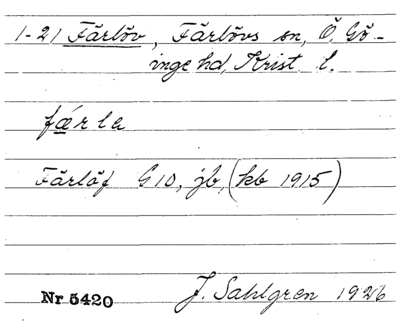 1-21 Färlöv, Färlövs sn, Ö. Gö-
inge hd, Krist. l.
fǽrla
Färlöf G10, jb, (kb 1915)
Nr 5420 J. Sahlgren 1926